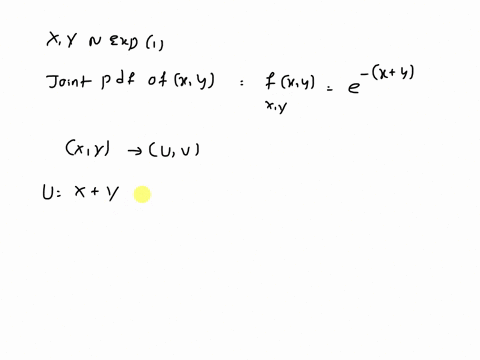 X,Y ~ Exp (1)
Joint pdf of (x,y) : f (x,y) = e^-(x+y)
x,y
(x,y) → (U,V)
U= x+y